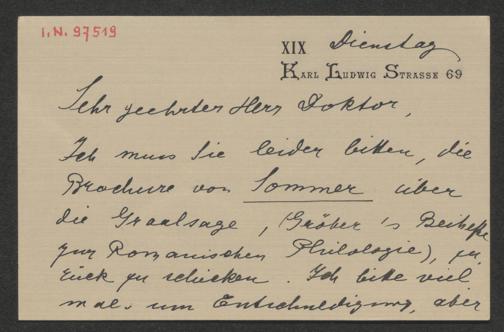 I.N. 97519
XIX Dienstag
Karl Ludwig Strasse 69
Sehr geehrter Herr Doktor,
Ich muss Sie leider bitten, die
Brochure von Sommer über
die Graalsage, (Gröber's Beihefte
zur Romanischen Philologie), zu-
rück zu schicken. Ich bitte viel
mals um Entschuldigung, aber